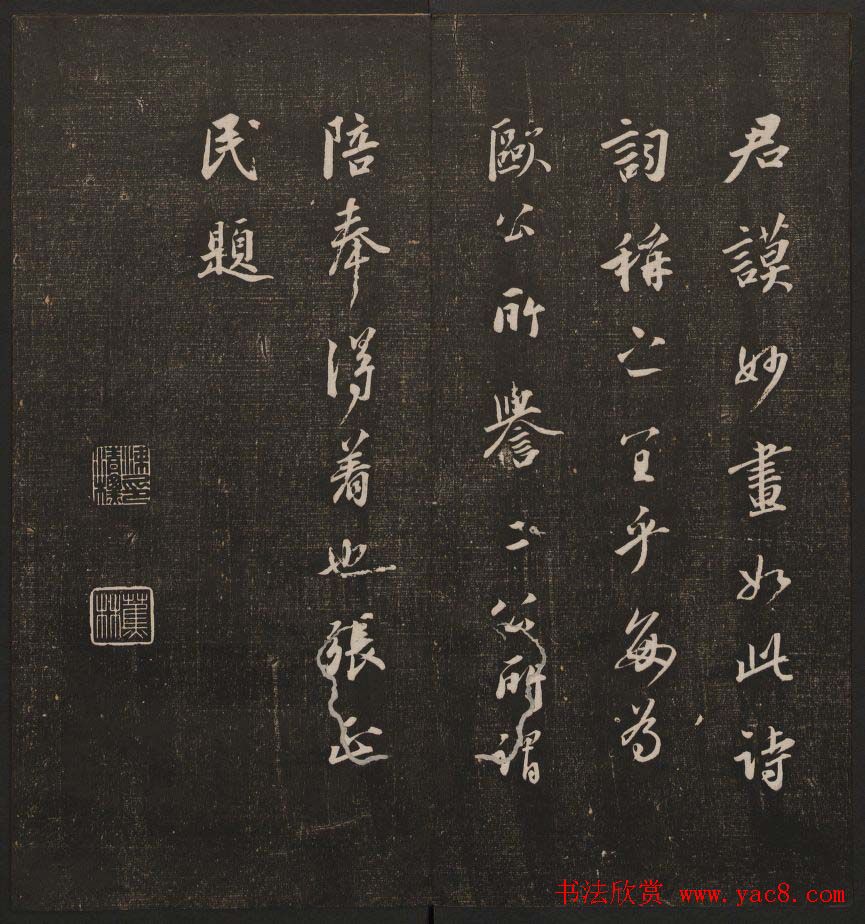 君謨妙畫如此詩
詞稱之宜乎每為
歐公所譽二公所謂
陪奉得着也張正
民題
蕉林
书法欣赏 www.yac8.com